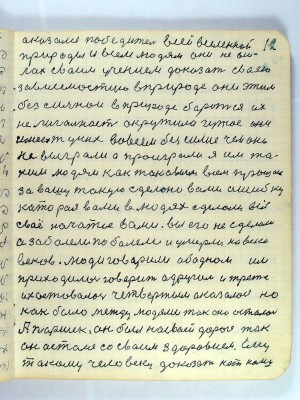 12
оказался победител всей вселенной
природы и всем людям они не
так своим учением доказат свою
зависемостию в природе они этим
без силном в природе борются их
не они
у них вовсем без силие чем они
не виграли а програли я им та
ким людям как таковым всем
за вашу такую сделано вами ошибку
которая вами в людях сделом всё
своё начатие вами. вы его не сделали
а заболели поболели и умерли на веко
веков. люди говорили об одном им
приходилос говорит о другим и трете
их осталось четвертым оказалос но
как было между людями так оно осталос
А паршек. он был на своей дороге так
он остался со своим здоровием. Ему
такому человеку доказат надо кому